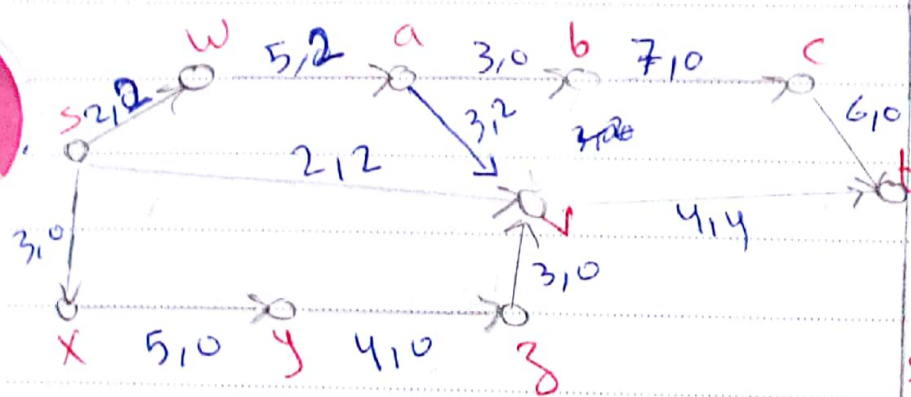 w 5,2 a 3,0 b 7,0 c
s 2,2 3,2 6,0
2,2 t
3,0 v 4,4
3,0
x 5,0 y 4,0 z